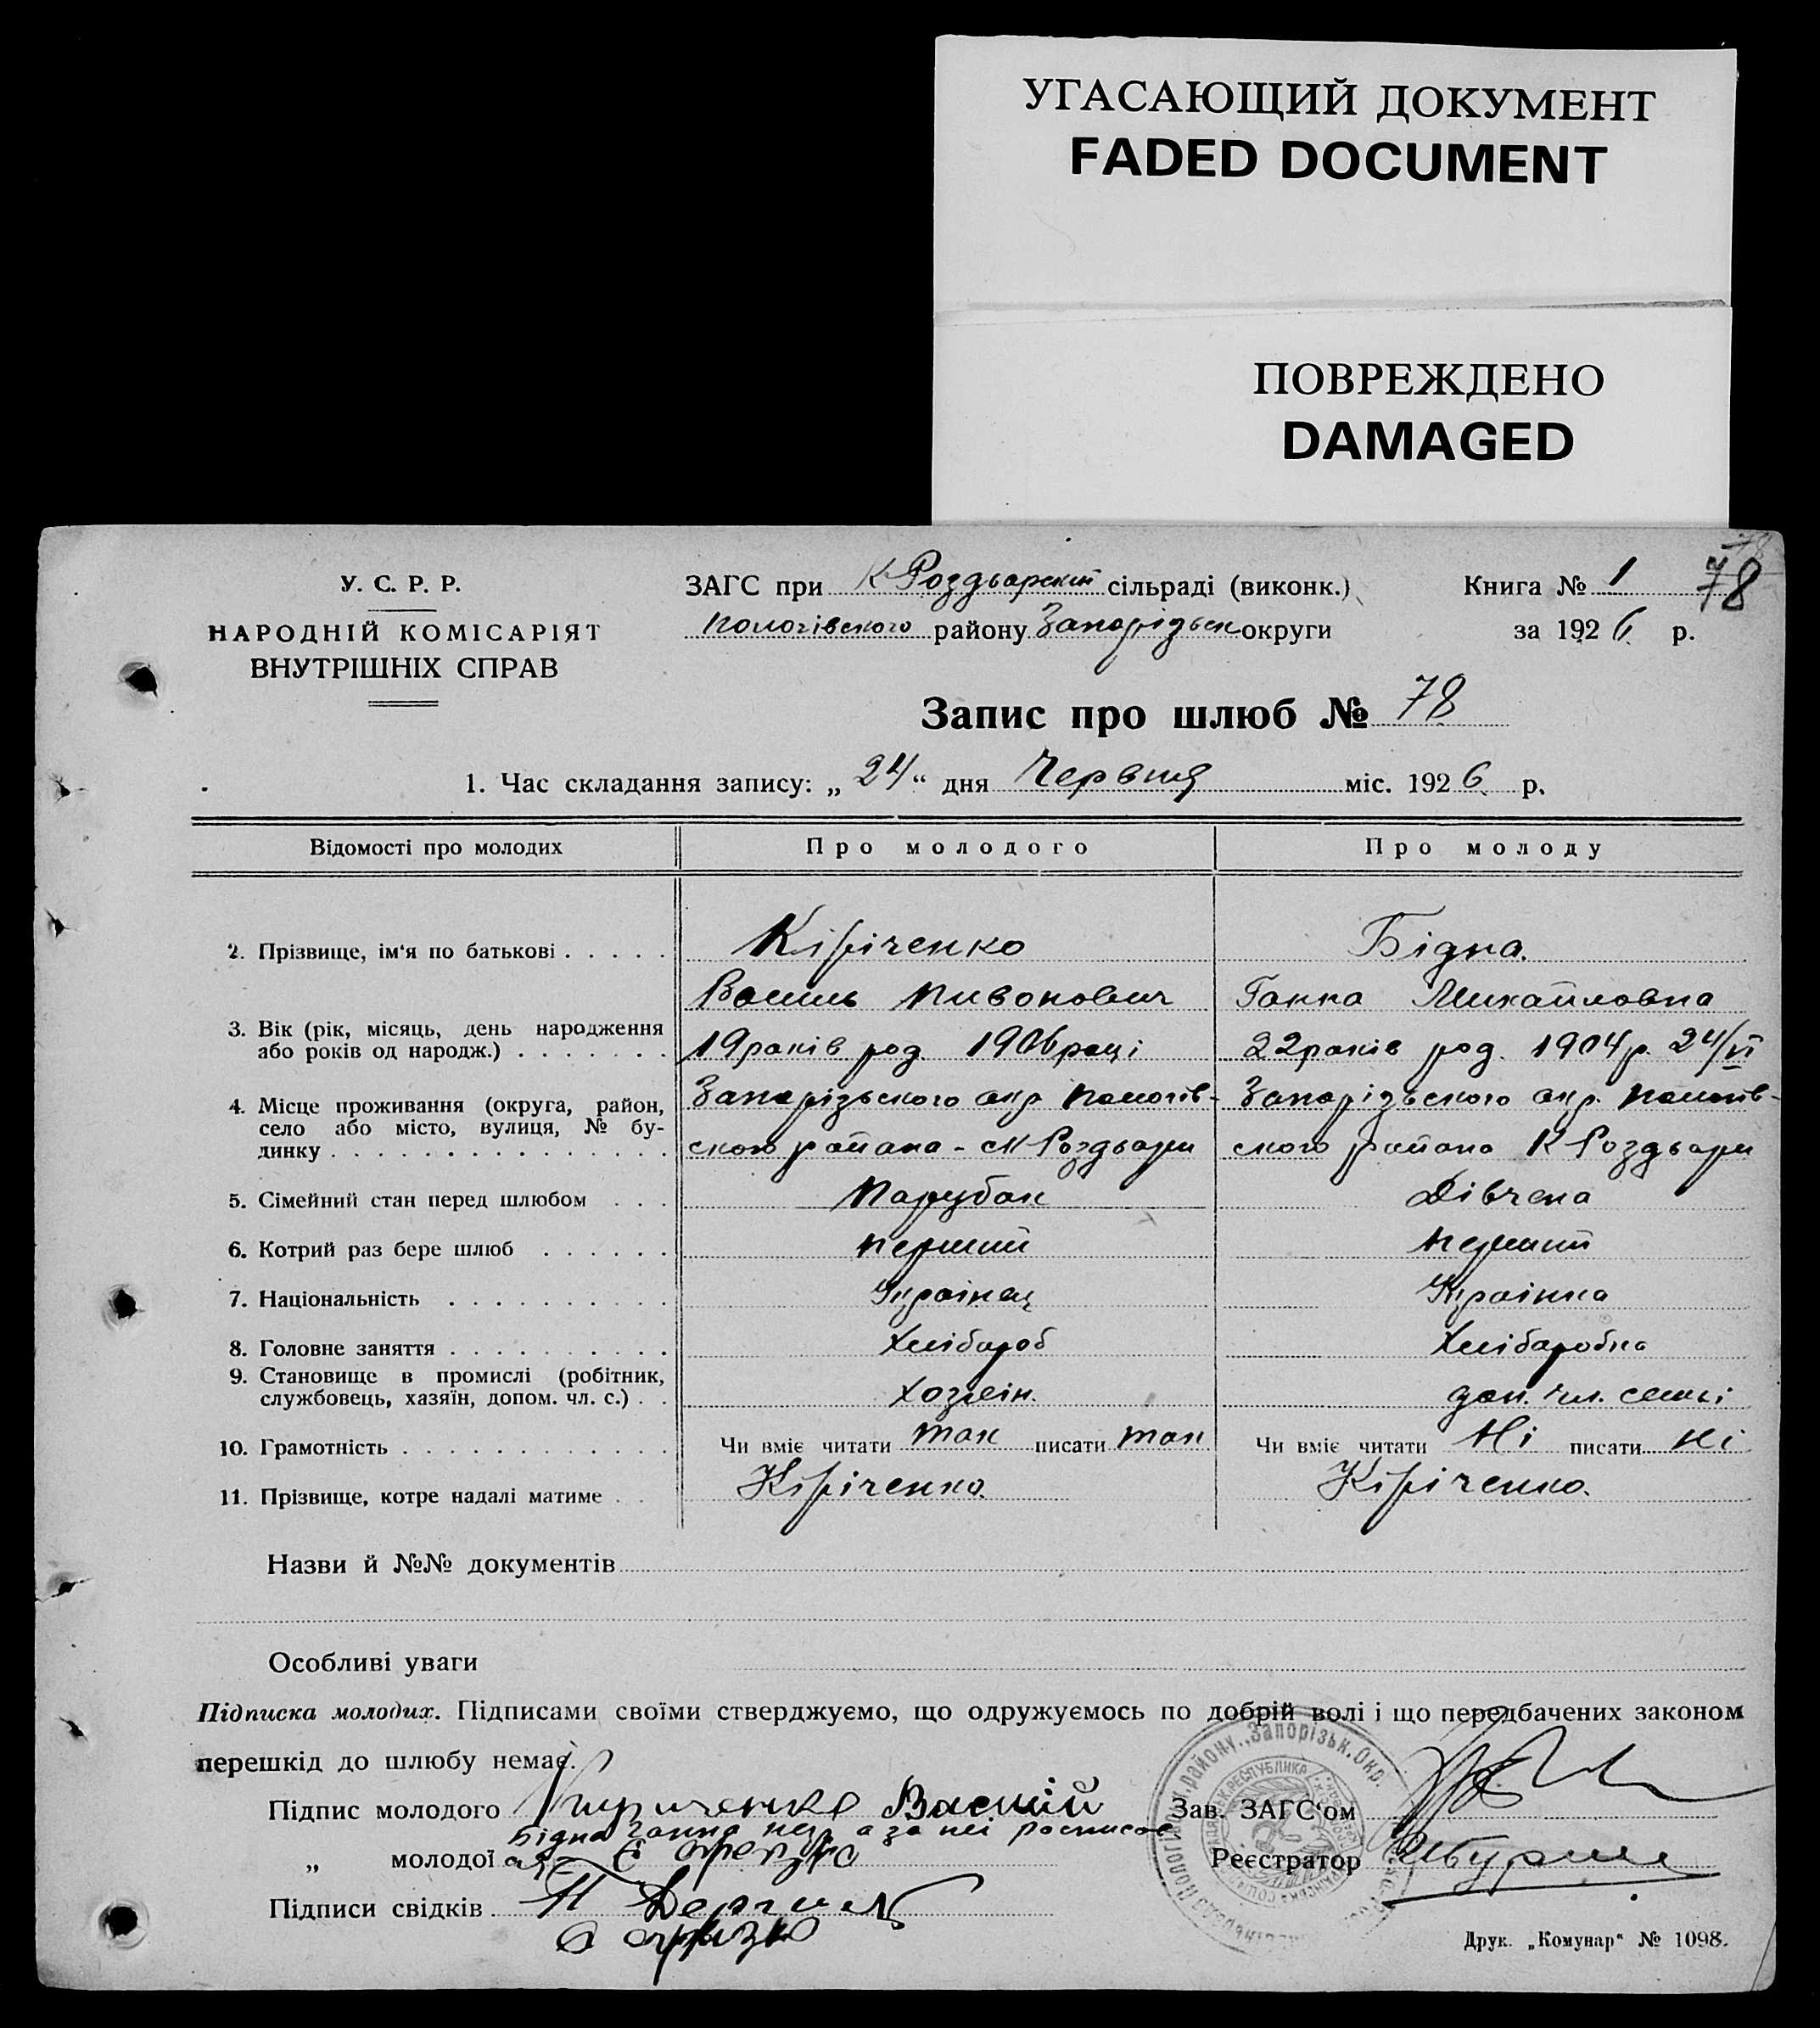 УГАСАЮЩИЙ ДОКУМЕНТ
FADED DOCUMENT
ПОВРЕЖДЕНО
DAMAGED
У. С. Р. Р.
НАРОДНІЙ КОМІСАРІЯТ
ВНУТРІШНІХ СПРАВ
ЗАГС при К Роздьорскій сільраді (виконк.)
Пологівского району Запорізьк округи
Книга № 1 78
за 1926 р.
Запис про шлюб № 78
1. Час складання запису: „24“ дня Червня міс. 1926 р.
Відомості про молодих Про молодого Про молоду
2. Прізвище, ім‘я по батькові Кіріченко Бідна.
Василь Пивонович Ганна Михайловна
3. Вік (рік, місяць, день народження
або років од народж.) 19 років род. 1906 році 22 років род. 1904 р. 24/VI
4. Місце проживання (округа, район,
село або місто, вулиця, № бу-
динку
Запорізьского окр Пологів- Запорізьского окр. Пологів-
ского района - К Роздьори ского района К Роздьори
5. Сімейний стан перед шлюбом Парубок Дівчена
6. Котрий раз бере шлюб первий первий
7. Національність Українец Українка
8. Головне заняття Хлібороб Хлібаробка
9. Становище в промислі (робітник,
службовець, хазяїн, допом. чл. с.) Хозяін. доп. чл. семьі
10. Грамотність Чи вміє читати так писати так Чи вміє читати Ні писати ні
11. Прізвище, котре надалі матиме Кіріченко. Кіріченко.
Назви й №№ документів
Особливі уваги
Підписка молодих. Підписами своїми стверджуємо, що одружуємось по добрій волі і що передбачених законом
перешкід до шлюбу немає.
Підпис молодого Кириченко Василій Зав. ЗАГС‘ом
Бідна Ганна а за неї росписав
„ молодої Реєстратор
Підписи свідків
Друк. „Комунар“ № 1098.